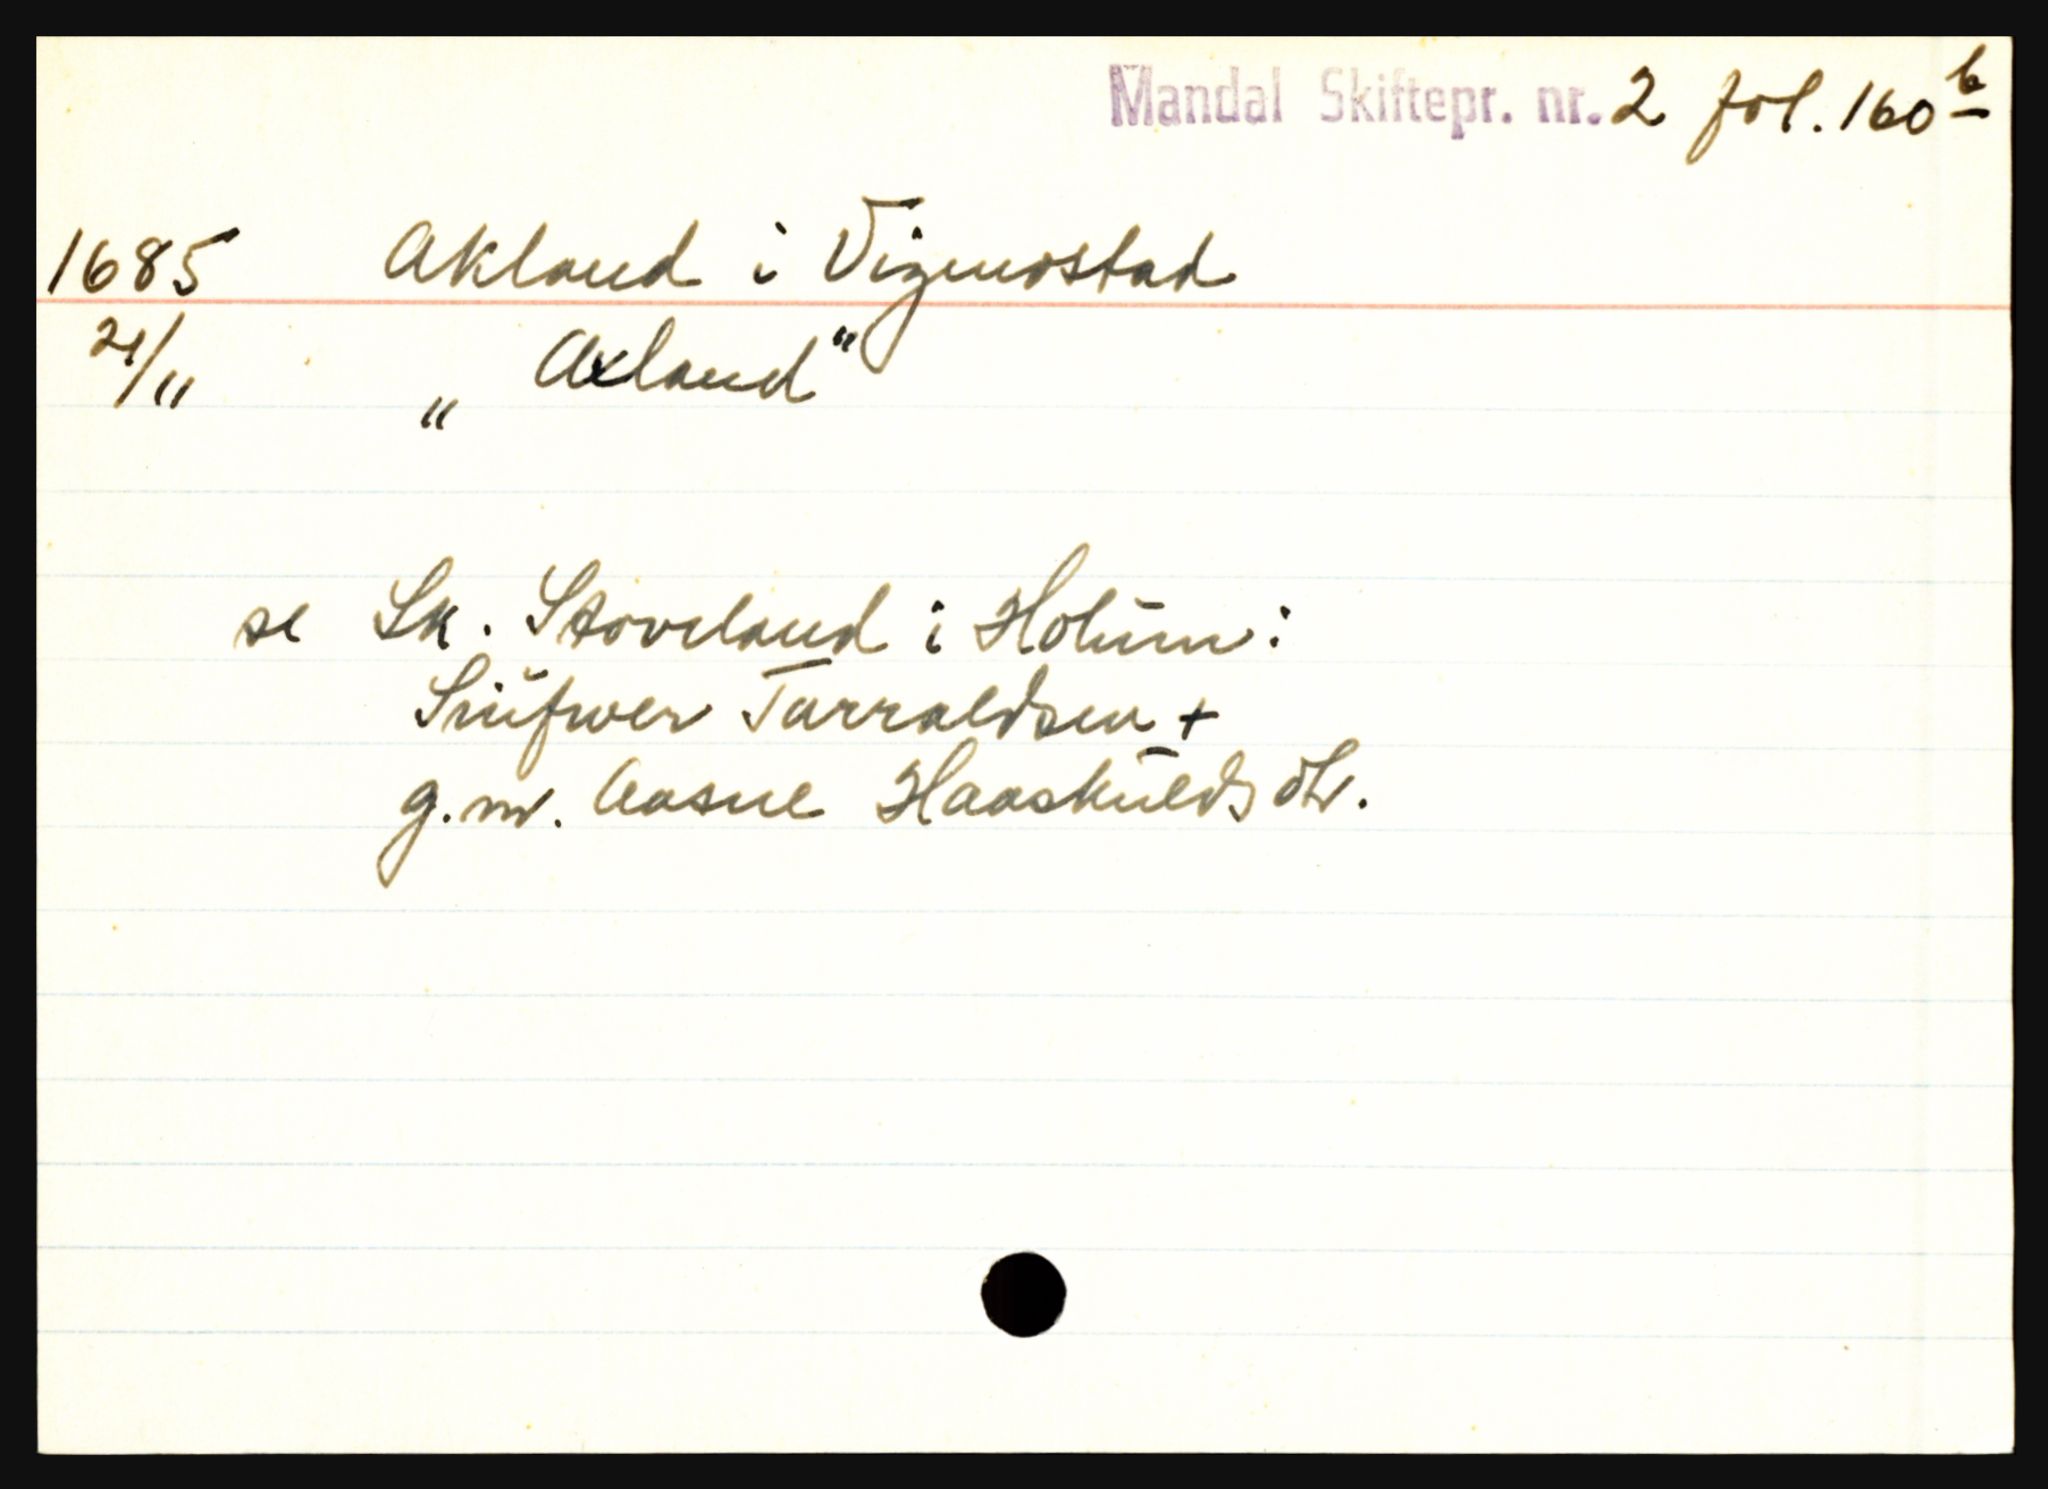 Mandal Skiftepr. nr. 2 fol. 160 b
1685 Akland i Vigmostad
21/11 „ Axland "
se Sk. Stoveland i Holum:
Siufwer Tarraldsen +
g.m. Aasne Haaskuldsdtr.